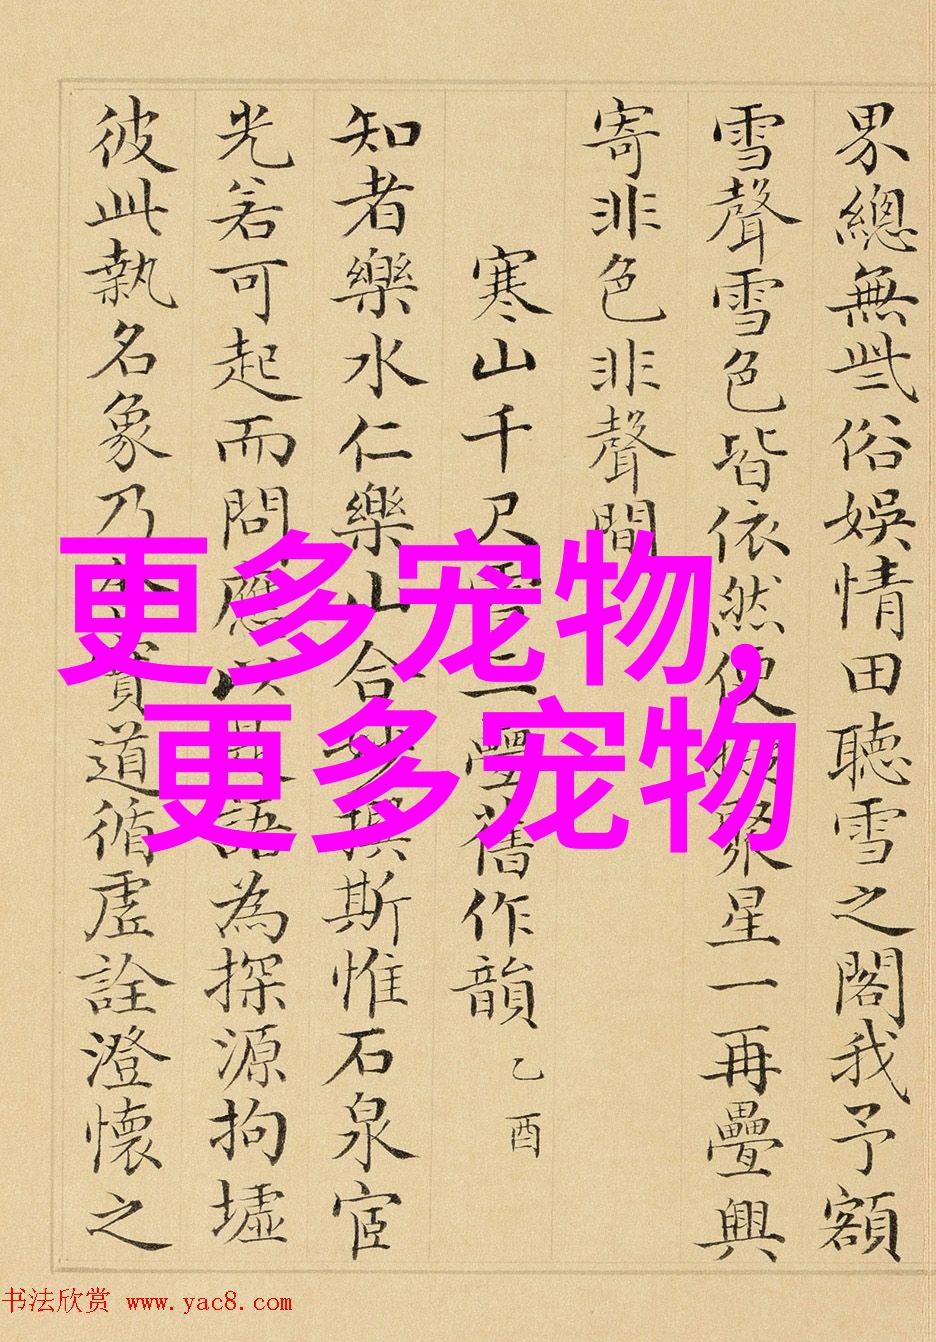 界總無些俗娛情田聽雪之閣我予額
雪聲雪色皆依然便聚星一再疊興
寄非色非聲間
寒山千尺雪三疊舊作韻 乙酉
知者樂水仁樂山合撰斯惟石泉宦
光若可起而問應以語為探源拘墟
彼此執名象乃賓道循虛詮澄懷之
更多宠物,
更多宠物
书法欣赏 www.yac8.com